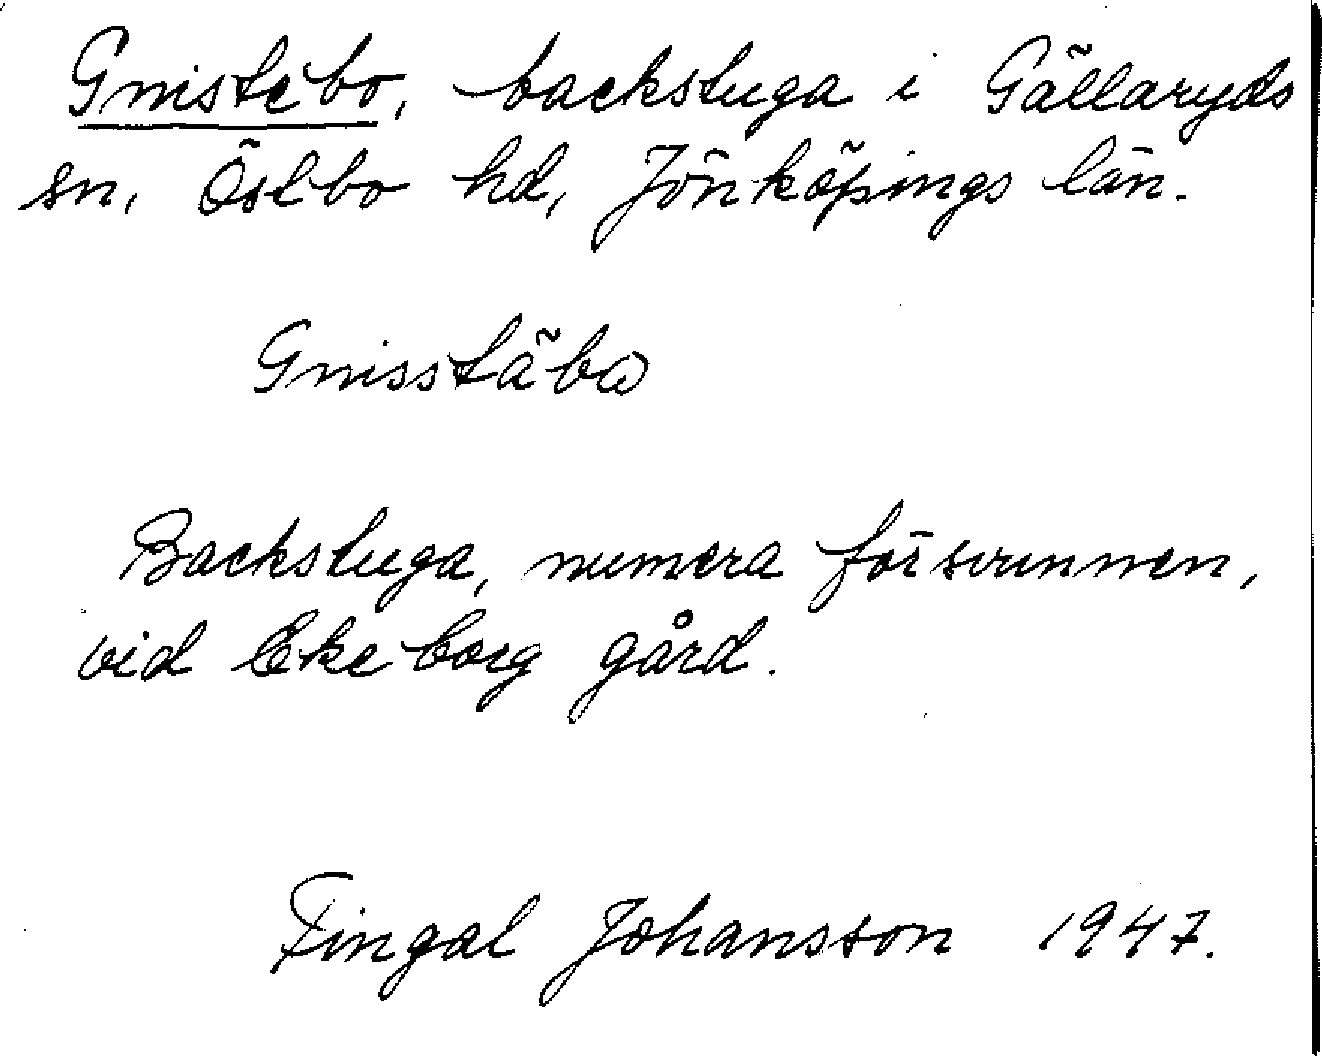 Gnistebo, backstuga i Gällaryds
sn, Östbo hd, Jönköpings län.
Gnisstäbo
Backstuga, numera försvunnen,
vid Ekeborg gård.
Fingal Johansson 1947.